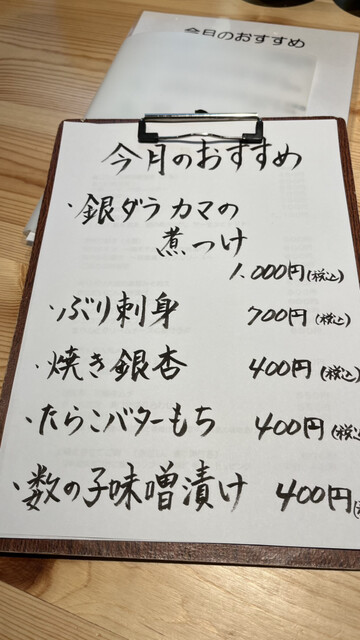 今月のおすすめ
今月のおすすめ
・銀ダラカマの
煮つけ
1.000円(税込)
・ぶり刺身 700円(税込)
・焼き銀杏 400円(税込)
・たらこバターもち 400円(税込
・数の子味噌漬け 400円(